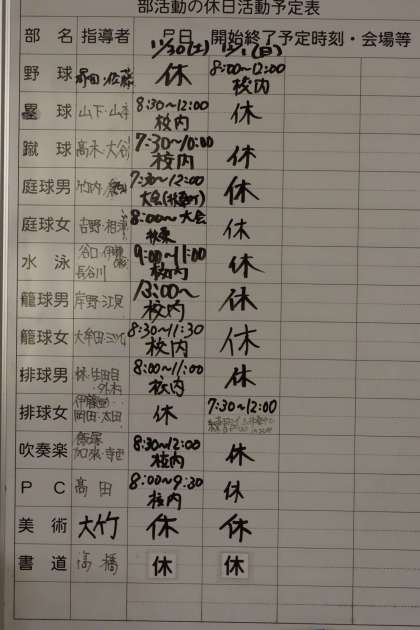 部活動の休日活動予定表
部 名 指導者 月日 開始終了予定時刻・会場等
11/30(土) 12/1(日)
野 球 佐藤 休 8:00〜12:00 校内
塁 球 山下・山本 8:30〜12:00 校内 休
蹴 球 高木・大谷 7:30〜10:00 校内 休
庭球男 竹内 7:30〜12:00 大会 休
庭球女 吉野・相澤 8:00〜 大会 休
水 泳 谷口・伊藤 長谷川 9:00〜11:00 校内 休
籠球男 岸野・江見 13:00〜 校内 休
籠球女 大牟田 8:30〜11:30 校内 休
排球男 林・生田目 8:00〜11:00 校内 休
排球女 伊藤 岡田・太田 休 7:30〜12:00
吹奏楽 飯塚 加来・寺西 8:30〜12:00 校内 休
P C 高田 8:00〜9:30 校内 休
美 術 大竹 休 休
書 道 高橋 休 休